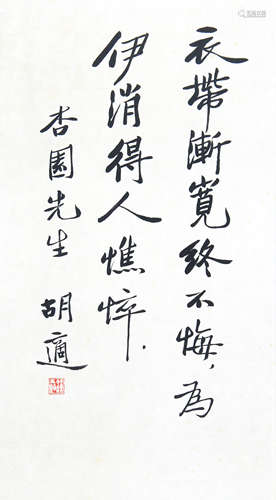 衣帶漸寬終不悔,為
伊消得人憔悴.
杏園先生 胡適